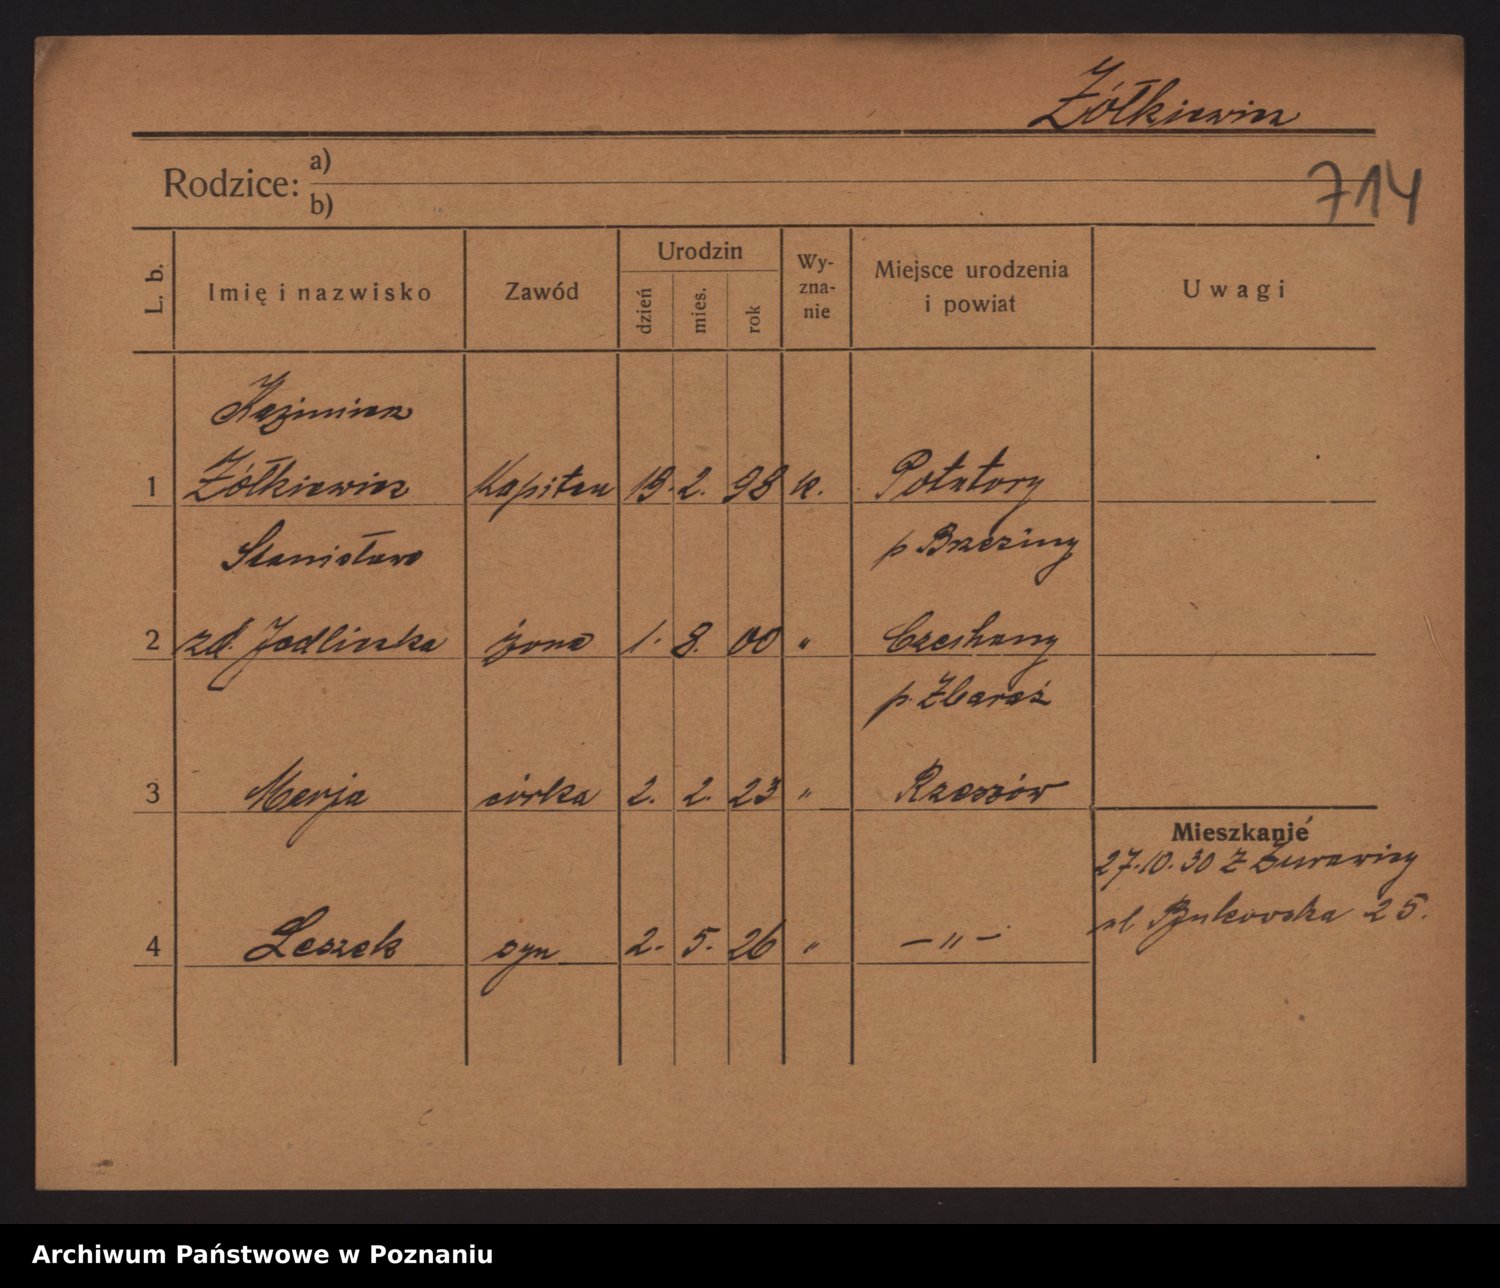 Żółkiewicz
Rodzice: a)
b)
714
L. b.
Imię i nazwisko
Zawód
Urodzin
dzień
mies.
rok
Wy-
zna-
nie
Miejsce urodzenia
i powiat
Uwagi
Kazimierz
1 Żółkiewicz Kapitan 19. 2. 98 k. Potutory
p Brzeziny
Stanisława
2 zd. Jedliczka żona 1. 8. 00 "
p. Zbaraż
3 Marja córka 2. 2. 23 " Rzeszów
4 Leszek syn 2. 5. 26 " — " —
Mieszkanie
27.10.30 z Żurawicy
ul Bukowska 25.
Archiwum Państwowe w Poznaniu